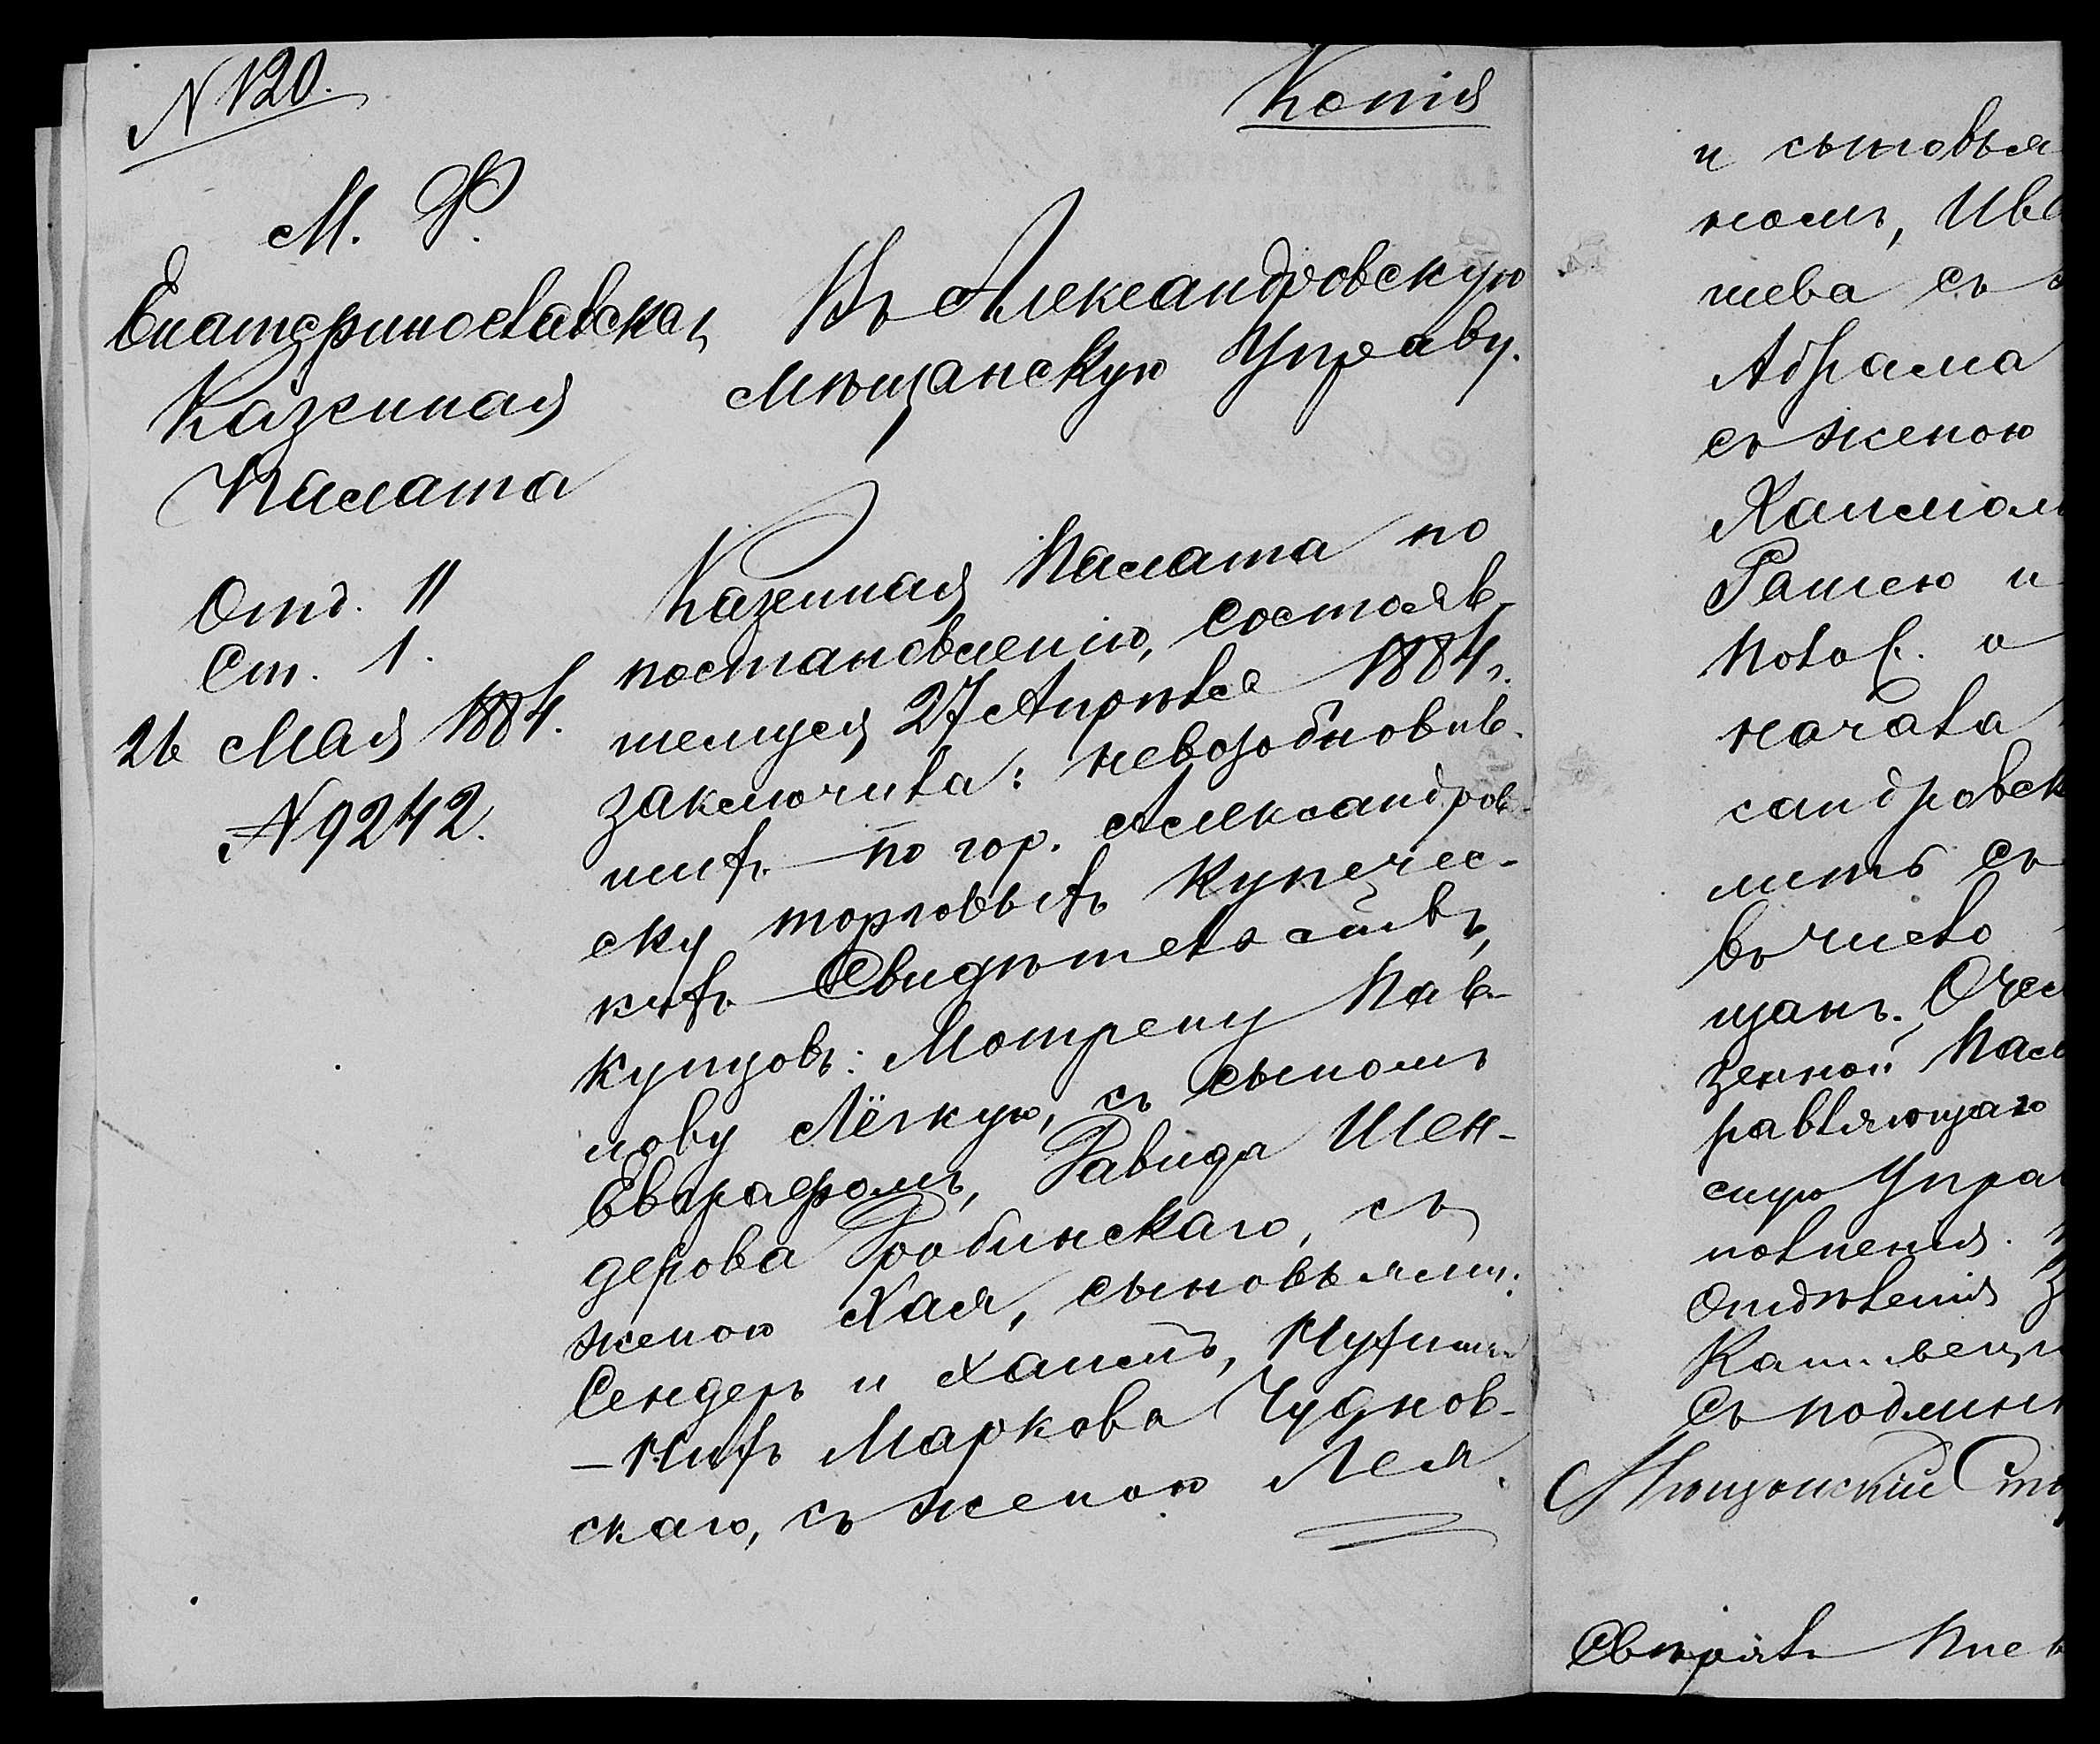 N 120.
Копія
М. Ф.
Екатеринославская
Казенная
Палата
Отд. II
Ст. 1.
26 Мая 1884.
N 9242.
Въ Александровскую
Мѣщанскую Управу.
Казенная Палата по
постановленію, состояв-
шемуся 27 Апрѣля 1884 г.
заключила: невозобновив-
шихъ по гор. Александров-
ску торговыхъ купечес-
кихъ Свидѣтельствъ,
купцовъ: Мотрену Пав-
лову Лёгкую, съ сыномъ
Евграфомъ, Давида Шен-
дерова Гробинскаго, съ
женою Хая, сыновьями:
Сендеръ и Хаимъ,
Маркова Чуднов-
скаго, съ женою Лея
и сыновья
номъ, Ив
шева съ
Абрама
съ женою
Хаимом
Рашею и
Полоб. о
начала
сандровск
лить съ
въ число
щанъ.
зенной Пал
равляющаго
скую Упра
полненія.
Отдѣленія
Съ подлин
Мѣщанскій Ст
Свѣрялъ Пис